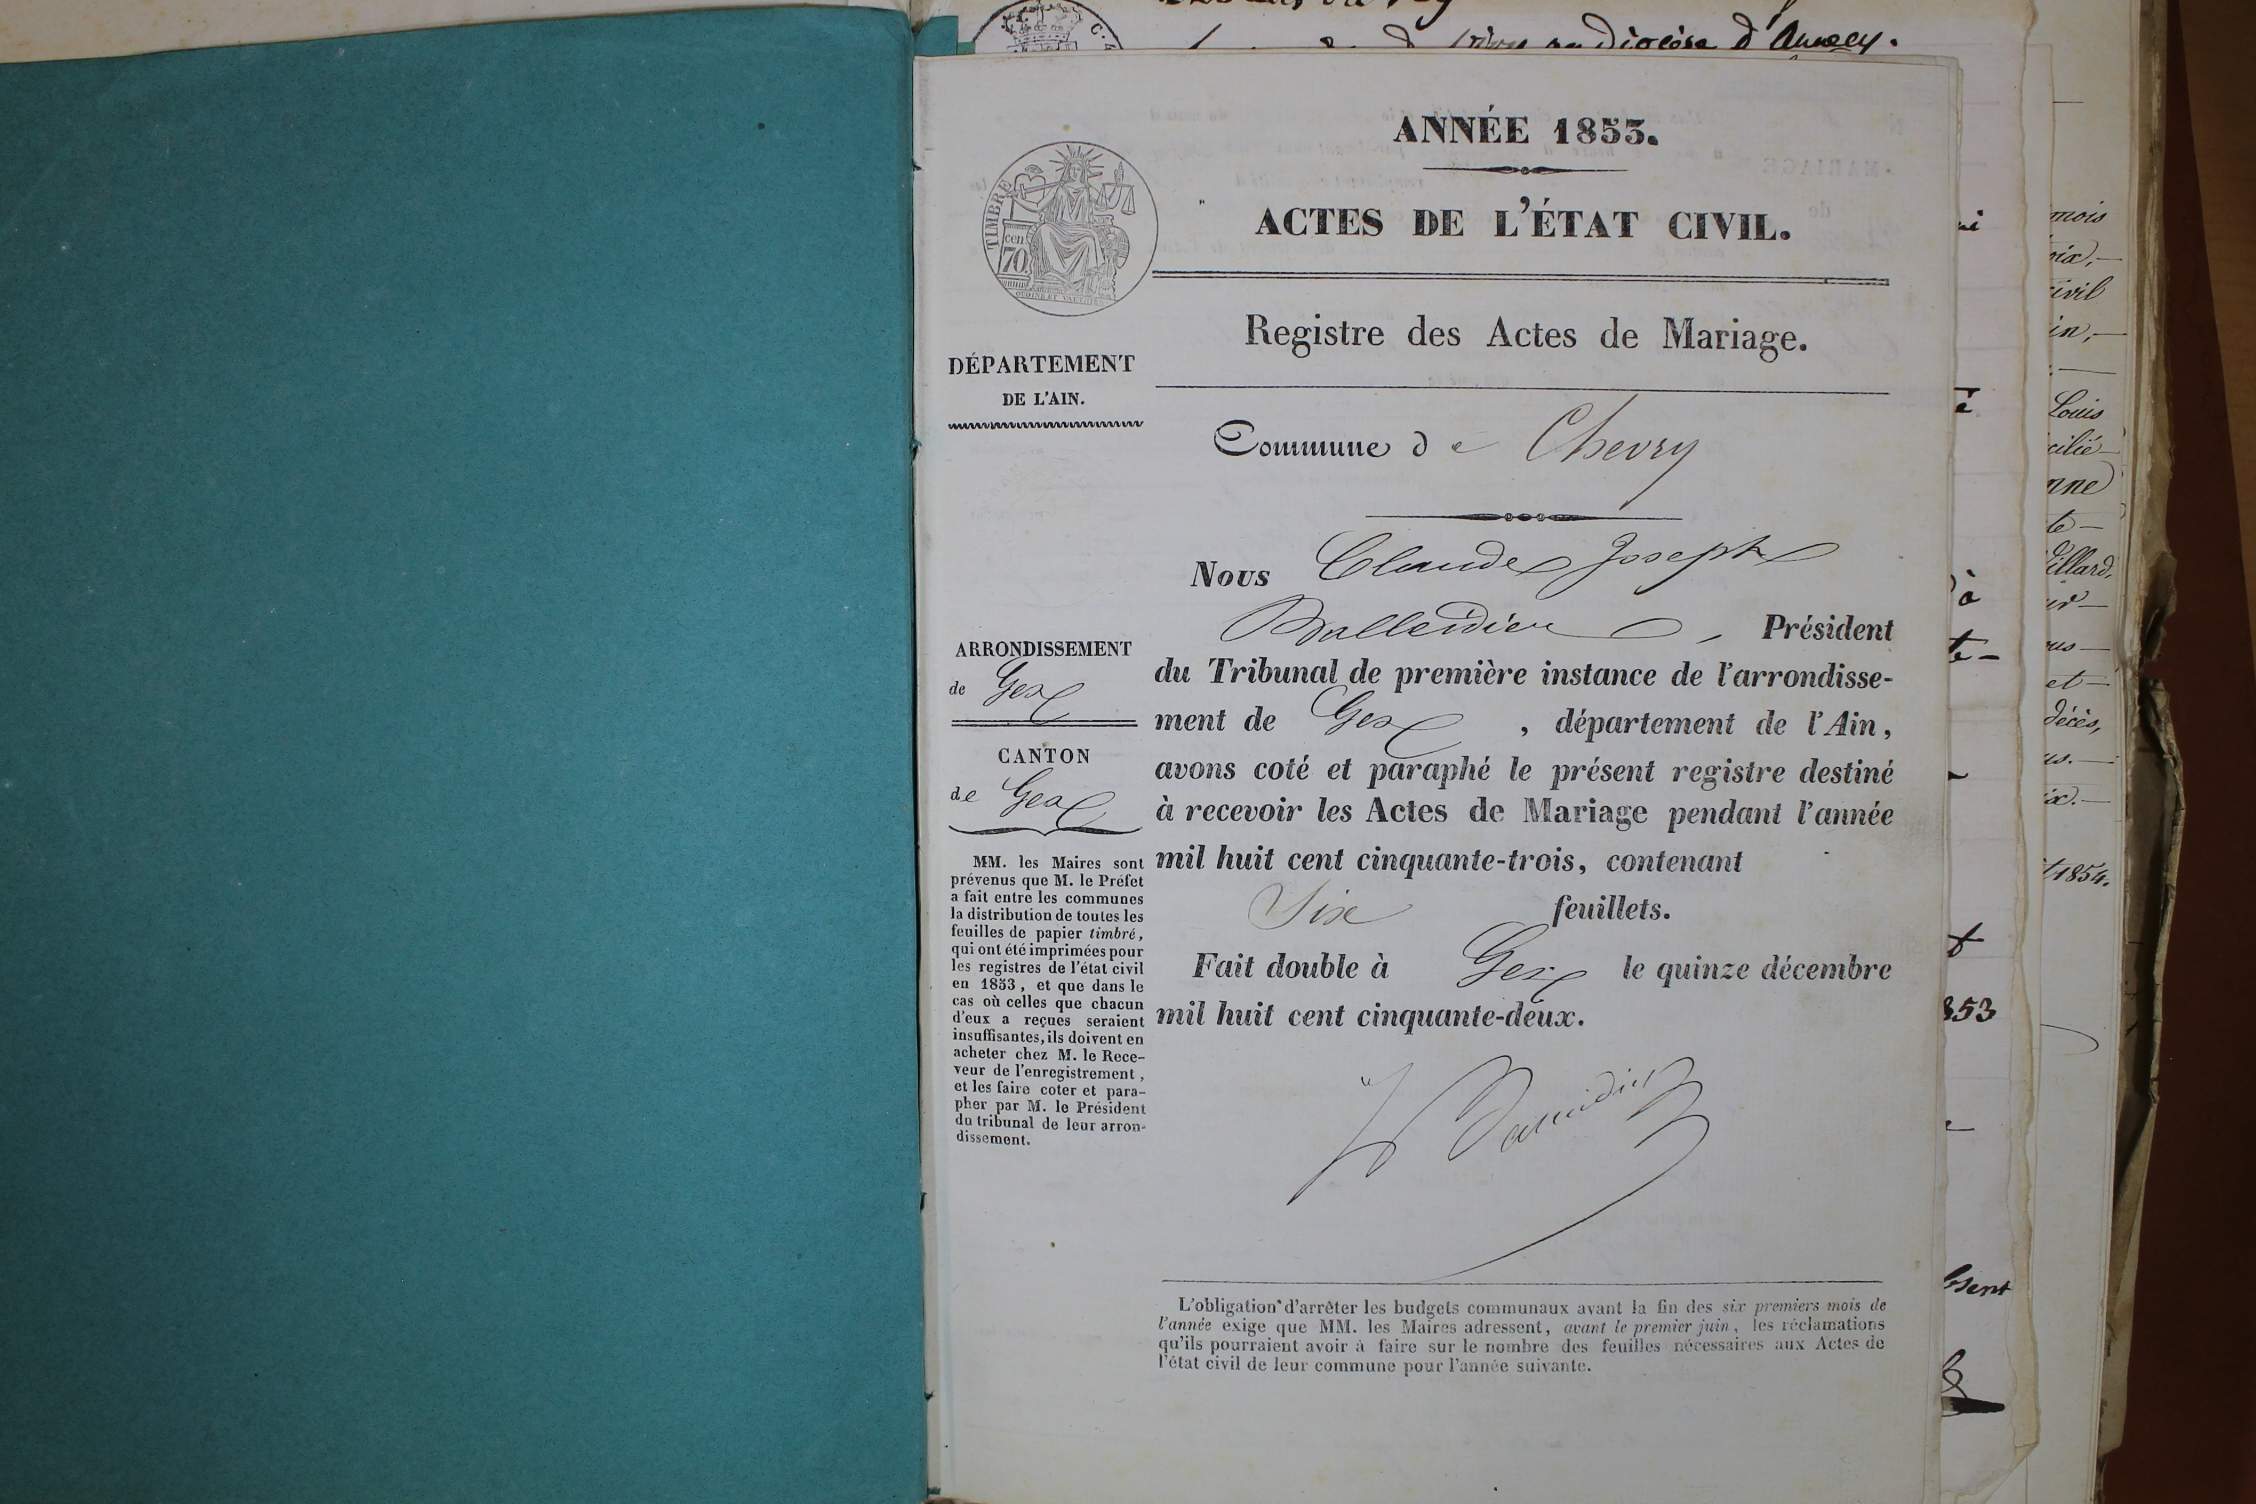 diocèse d'Annecy.
ANNÉE 1853.
ACTES DE L'ÉTAT CIVIL.
TIMBRE
70
cen
Registre des Actes de Mariage.
DÉPARTEMENT
DE L'AIN.
Commune de Chevry
Nous Claude Joseph
Balleidier, Président
du Tribunal de première instance de l'arrondisse-
ment de Gex, département de l'Ain,
avons coté et paraphé le présent registre destiné
à recevoir les Actes de Mariage pendant l'année
mil huit cent cinquante-trois, contenant
Six feuillets.
Fait double à Gex le quinze décembre
mil huit cent cinquante-deux.
ARRONDISSEMENT
de Gex
CANTON
de Gex
MM. les Maires sont
prévenus que M. le Préfet
a fait entre les communes
la distribution de toutes les
feuilles de papier timbré,
qui ont été imprimées pour
les registres de l'état civil
en 1853, et que dans le
cas où celles que chacun
d'eux a reçues seraient
insuffisantes, ils doivent en
acheter chez M. le Rece-
veur de l'enregistrement,
et les faire coter et para-
pher par M. le Président
du tribunal de leur arron-
dissement.
L'obligation d'arrêter les budgets communaux avant la fin des six premiers mois de
l'année exige que MM. les Maires adressent, avant le premier juin, les réclamations
qu'ils pourraient avoir à faire sur le nombre des feuilles nécessaires aux Actes de
l'état civil de leur commune pour l'année suivante.
mois
Louis
1854.